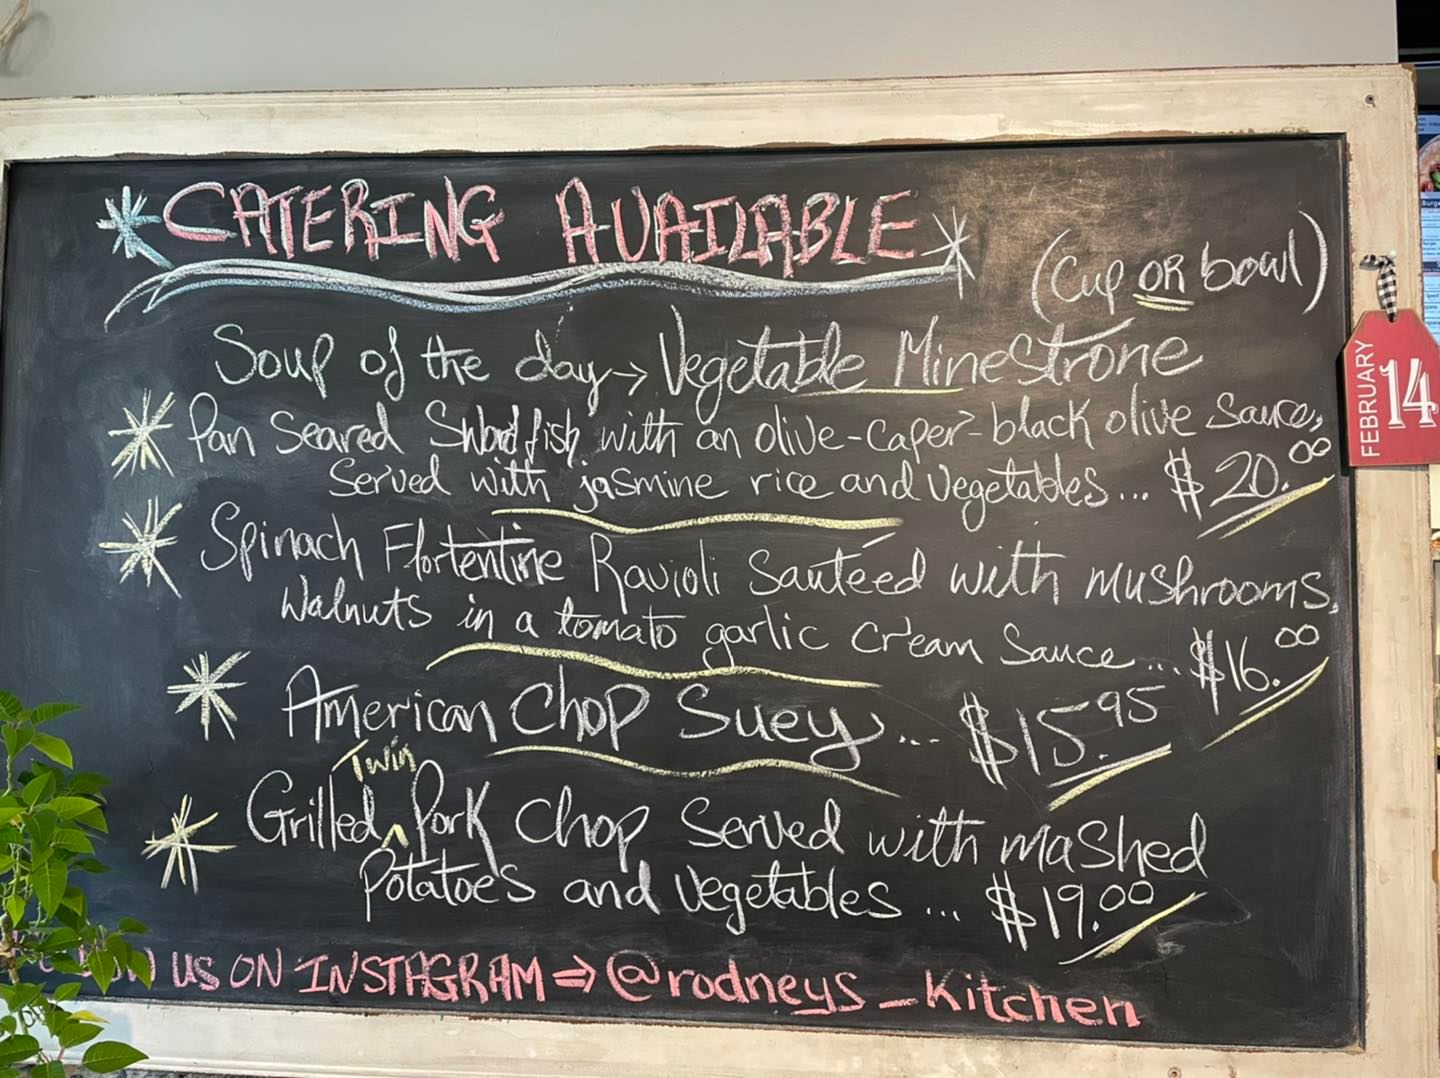 CATERING AVAILABLE
(Cup OR bowl)
Soup of the day→ Vegetable Minestrone
Pan Seared Swordfish with an olive-caper-black olive sauce,
Served with jasmine rice and vegetables... $20.00
Spinach Flortentine Ravioli Sautéed with mushrooms,
Walnuts in a tomato garlic cream Sauce... $16.00
American Chop Suey... $15.95
Twin
Grilled ^ Pork Chop Served with mashed
Potatoes and vegetables... $19.00
US ON INSTAGRAM ⇒ @rodneys_kitchen
FEBRUARY
14